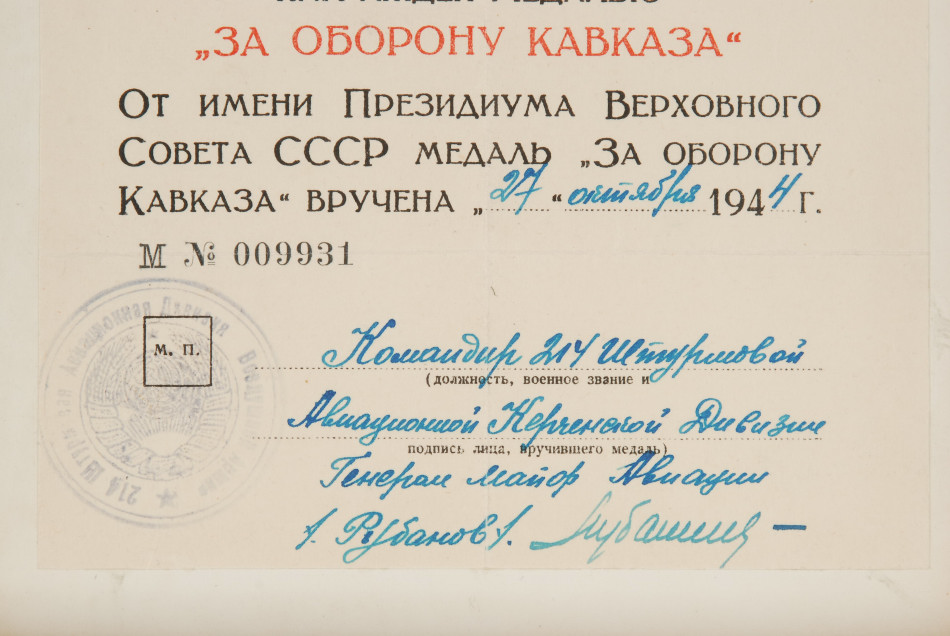 „ЗА ОБОРОНУ КАВКАЗА“
От имени Президиума Верховного
Совета СССР медаль „За оборону
Кавказа“ вручена „27“ октября 1944 г.
М № 009931
М. П.
Командир 214 Штурмовой
(должность, военное звание и
Авиационной Керченской Дивизии
подпись лица, вручившего медаль)
Генерал майор Авиации
/. Рубанов /.
214 Авиационная Дивизия